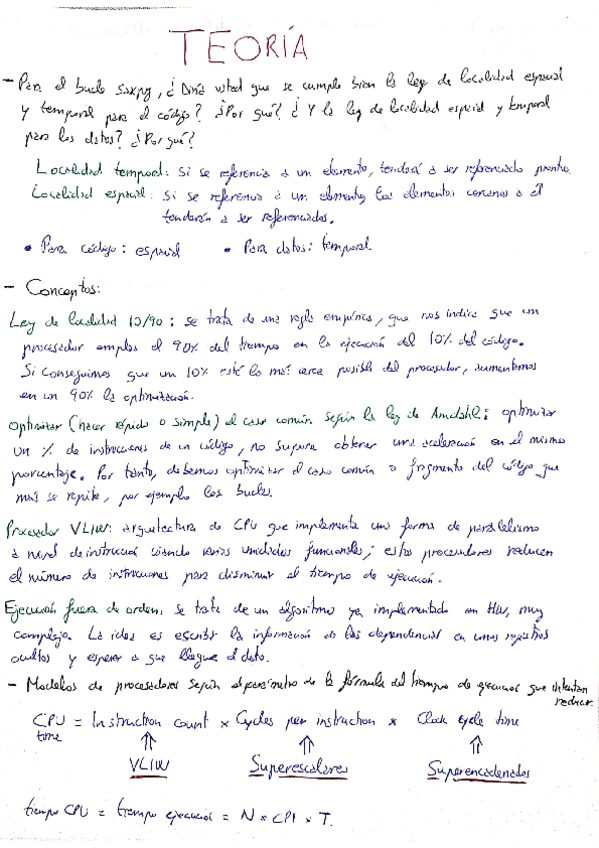 TEORÍA
- Para el bucle saxpy, ¿Diría usted que se cumple bien la ley de localidad espacial
y temporal para el código? ¿Por qué? ¿Y la ley de localidad espacial y temporal
para los datos? ¿Por qué?
Localidad temporal: Si se referencia a un elemento, tenderá a ser referenciado pronto.
Localidad espacial: Si se referencia a un elemento, los elementos cercanos a él
tenderán a ser referenciados.
• Para código: espacial • Para datos: temporal
- Conceptos:
Ley de localidad 10/90: se trata de una regla empírica, que nos indica que un
procesador emplea el 90% del tiempo en la ejecución del 10% del código.
Si conseguimos que un 10% esté lo más cerca posible del procesador, aumentamos
en un 90% la optimización.
Optimizar (hacer rápido o simple) el caso común según la ley de Amdahl: optimizar
un % de instrucciones de un código, no supone obtener una aceleración en el mismo
porcentaje. Por tanto, debemos optimizar el caso común o fragmento del código que
más se repite, por ejemplo los bucles.
Procesador VLIW: arquitectura de CPU que implementa una forma de paralelismo
a nivel de instrucción usando varias unidades funcionales; estos procesadores reducen
el número de instrucciones para disminuir el tiempo de ejecución.
Ejecución fuera de orden: se trata de un algoritmo ya implementado en HW, muy
complejo. La idea es escribir la información de las dependencias en unos registros
ocultos y esperar a que llegue el dato.
- Modelos de procesadores según el parámetro de la fórmula del tiempo de ejecución que intentan
reducir.
CPU time = Instruction count × Cycles per instruction × Clock cycle time
VLIW Superescalares Superencadenados
tiempo CPU = tiempo ejecución = N × CPI × T.